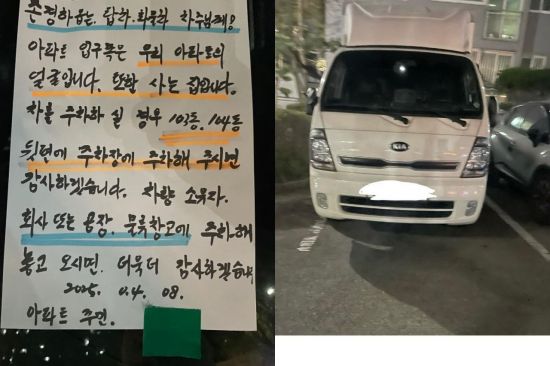 존경하옵는, 탑차, 화물차 차주님께!
아파트 입구쪽은 우리 아파트의
얼굴입니다. 또한 사는 집입니다.
차를 주차하실 경우 103동, 104동
뒷편에 주차장에 주차해 주시면
감사하겠습니다. 차량 소유자.
회사 또는 공장, 물류창고에 주차해
놓고 오시면, 더욱더 감사하겠습니다
2025. 04. 08.
아파트 주민.
KIA